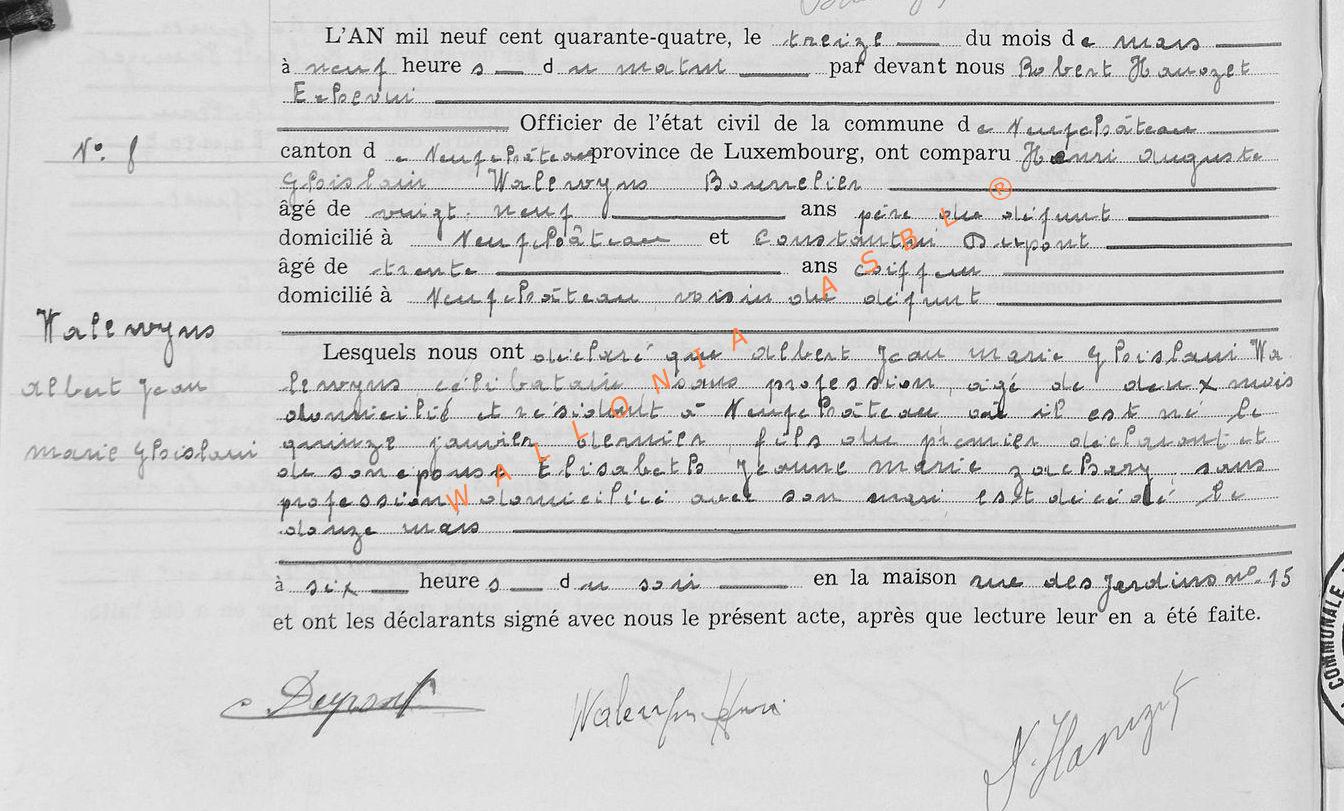 L'AN mil neuf cent quarante-quatre, le treize du mois de mars
à neuf heures du matin par devant nous Robert Hanozet
Echevin
Officier de l'état civil de la commune de Neufchâteau
N° 8
canton de Neufchâteau province de Luxembourg, ont comparu Henri Auguste
Ghislain Walewyns Bourrelier
âgé de vingt-neuf ans père du défunt
domicilié à Neufchâteau et Constantin Dupont
âgé de trente ans coiffeur
domicilié à Neufchâteau voisin du défunt
Walewyns
Albert Jean
Marie Ghislain
Lesquels nous ont déclaré que Albert Jean Marie Ghislain Wa
lewyns célibataire sans profession, agé de deux mois
domicilié et résidant à Neufchâteau où il est né le
quinze janvier dernier, fils du premier déclarant et
de son epouse Elisabeth Jeanne Marie Zachary sans
profession, domiciliée avec son mari est décédé le
douze mars
à six heures du soir en la maison rue des Jardins n° 15
et ont les déclarants signé avec nous le présent acte, après que lecture leur en a été faite.
WALLONIA ASBL ®
C Dupont Walewyns Henri
COMMUNALE